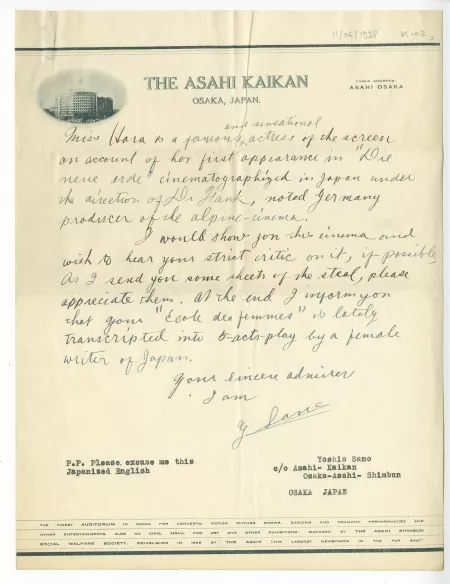 11/06/1938
THE ASAHI KAIKAN
OSAKA, JAPAN.
CABLE ADDRESS:
ASAHI OSAKA
and sensational
Miss Hara is a famous actress of the screen
on account of her first appearance in "Die
neue erde" cinematographized in Japan under
the direction of Dr Fank, noted Germany
producer of the alpine-cinema.
I would show you this cinema and
wish to hear your strict critic on it, if possible.
As I send you some sheets of the steal, please
appreciate them. At the end I inform you
that your "Ecole des femmes" is lately
transcripted into 5-acts-play by a female
writer of Japan.
Your sincere admirer
I am
Y Sano
P.P. Please excuse me this
Japanized English
Yoshio Sano
c/o Asahi- Kaikan
Osaka-Asahi- Shimbun
OSAKA JAPAN
THE FINEST AUDITORIUM IN OSAKA FOR CONCERTS, MOTION PICTURE SHOWS, DANCING AND DRAMATIC PERFORMANCES AND
OTHER ENTERTAINMENTS. ALSO AN IDEAL HALL FOR ART AND OTHER EXHIBITIONS. MANAGED BY THE ASAHI SHIMBUN
SOCIAL WELFARE SOCIETY. ESTABLISHED IN 1928 BY THE ASAHI (THE LARGEST NEWSPAPER IN THE FAR EAST)